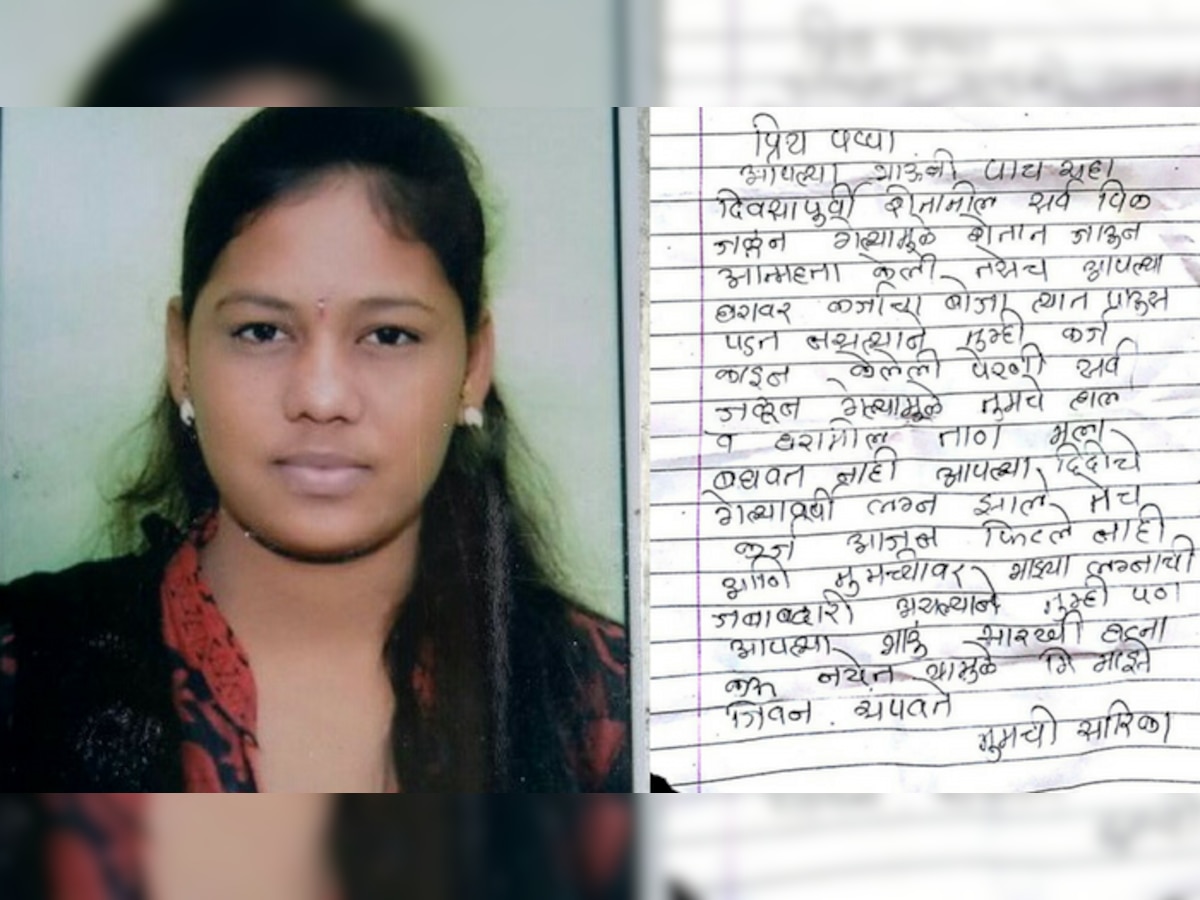 प्रिय पप्पा
आपल्या भाऊंनी पाच सहा
दिवसापुर्वी शेतामील सर्व पिक
जळुन गेल्यामूळे शेतात जाऊन
आत्महत्ता केली तसेच आपल्या
घरावर कर्जाचा बोजा त्यात प्राऊस
पडत नसल्याने तुम्ही कर्ज
काढुन केलेली पेरणी सर्व
जळून गेल्यामूळे तुमचे हाल
व घरामील ताण मला
बघवत नाही आपल्या दिदीचे
गेल्यावर्षी लग्न झाले तेच
कर्ज आजुन फिटले नाही
आणि तुमच्यावर माझ्या लग्नाची
जबाबदारी असल्याने तुम्ही पण
आपल्या भाऊ सारखी घटना
करु नयेत यामुळे मि माझे
जिवन संपवते
तुमची सारिका